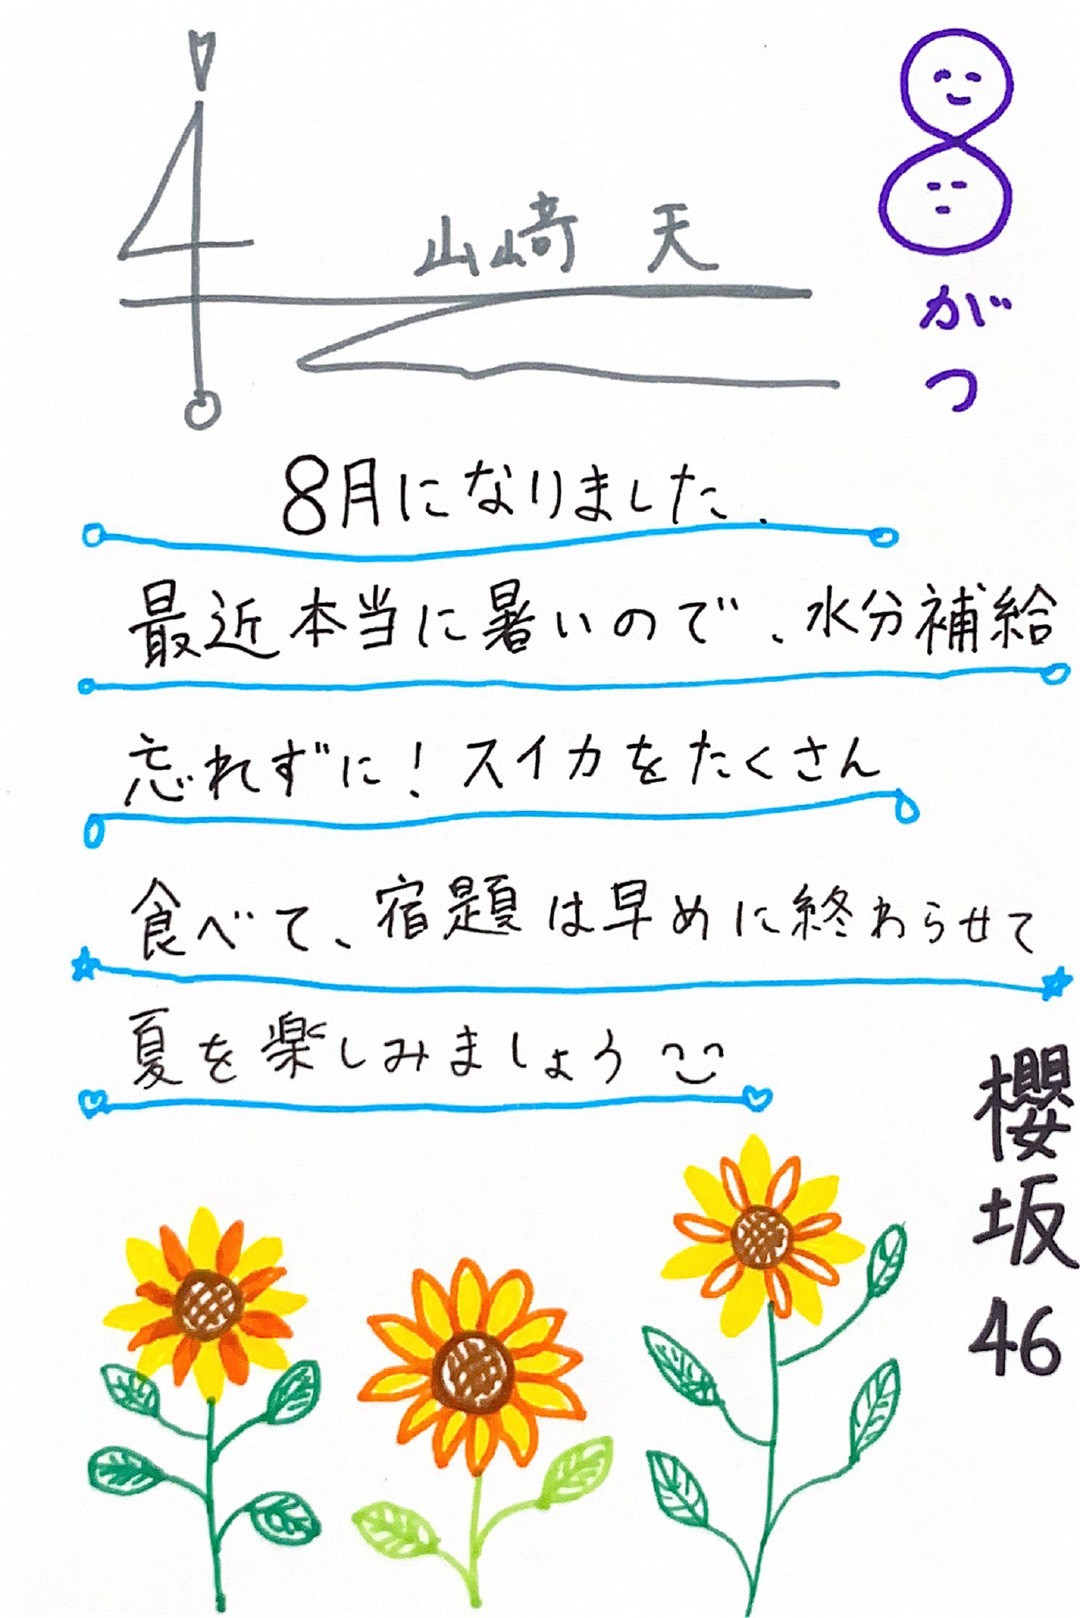 8がつ
山﨑 天
8月になりました.
最近本当に暑いので、水分補給
忘れずに!スイカをたくさん
食べて、宿題は早めに終わらせて
夏を楽しみましょう
櫻坂46